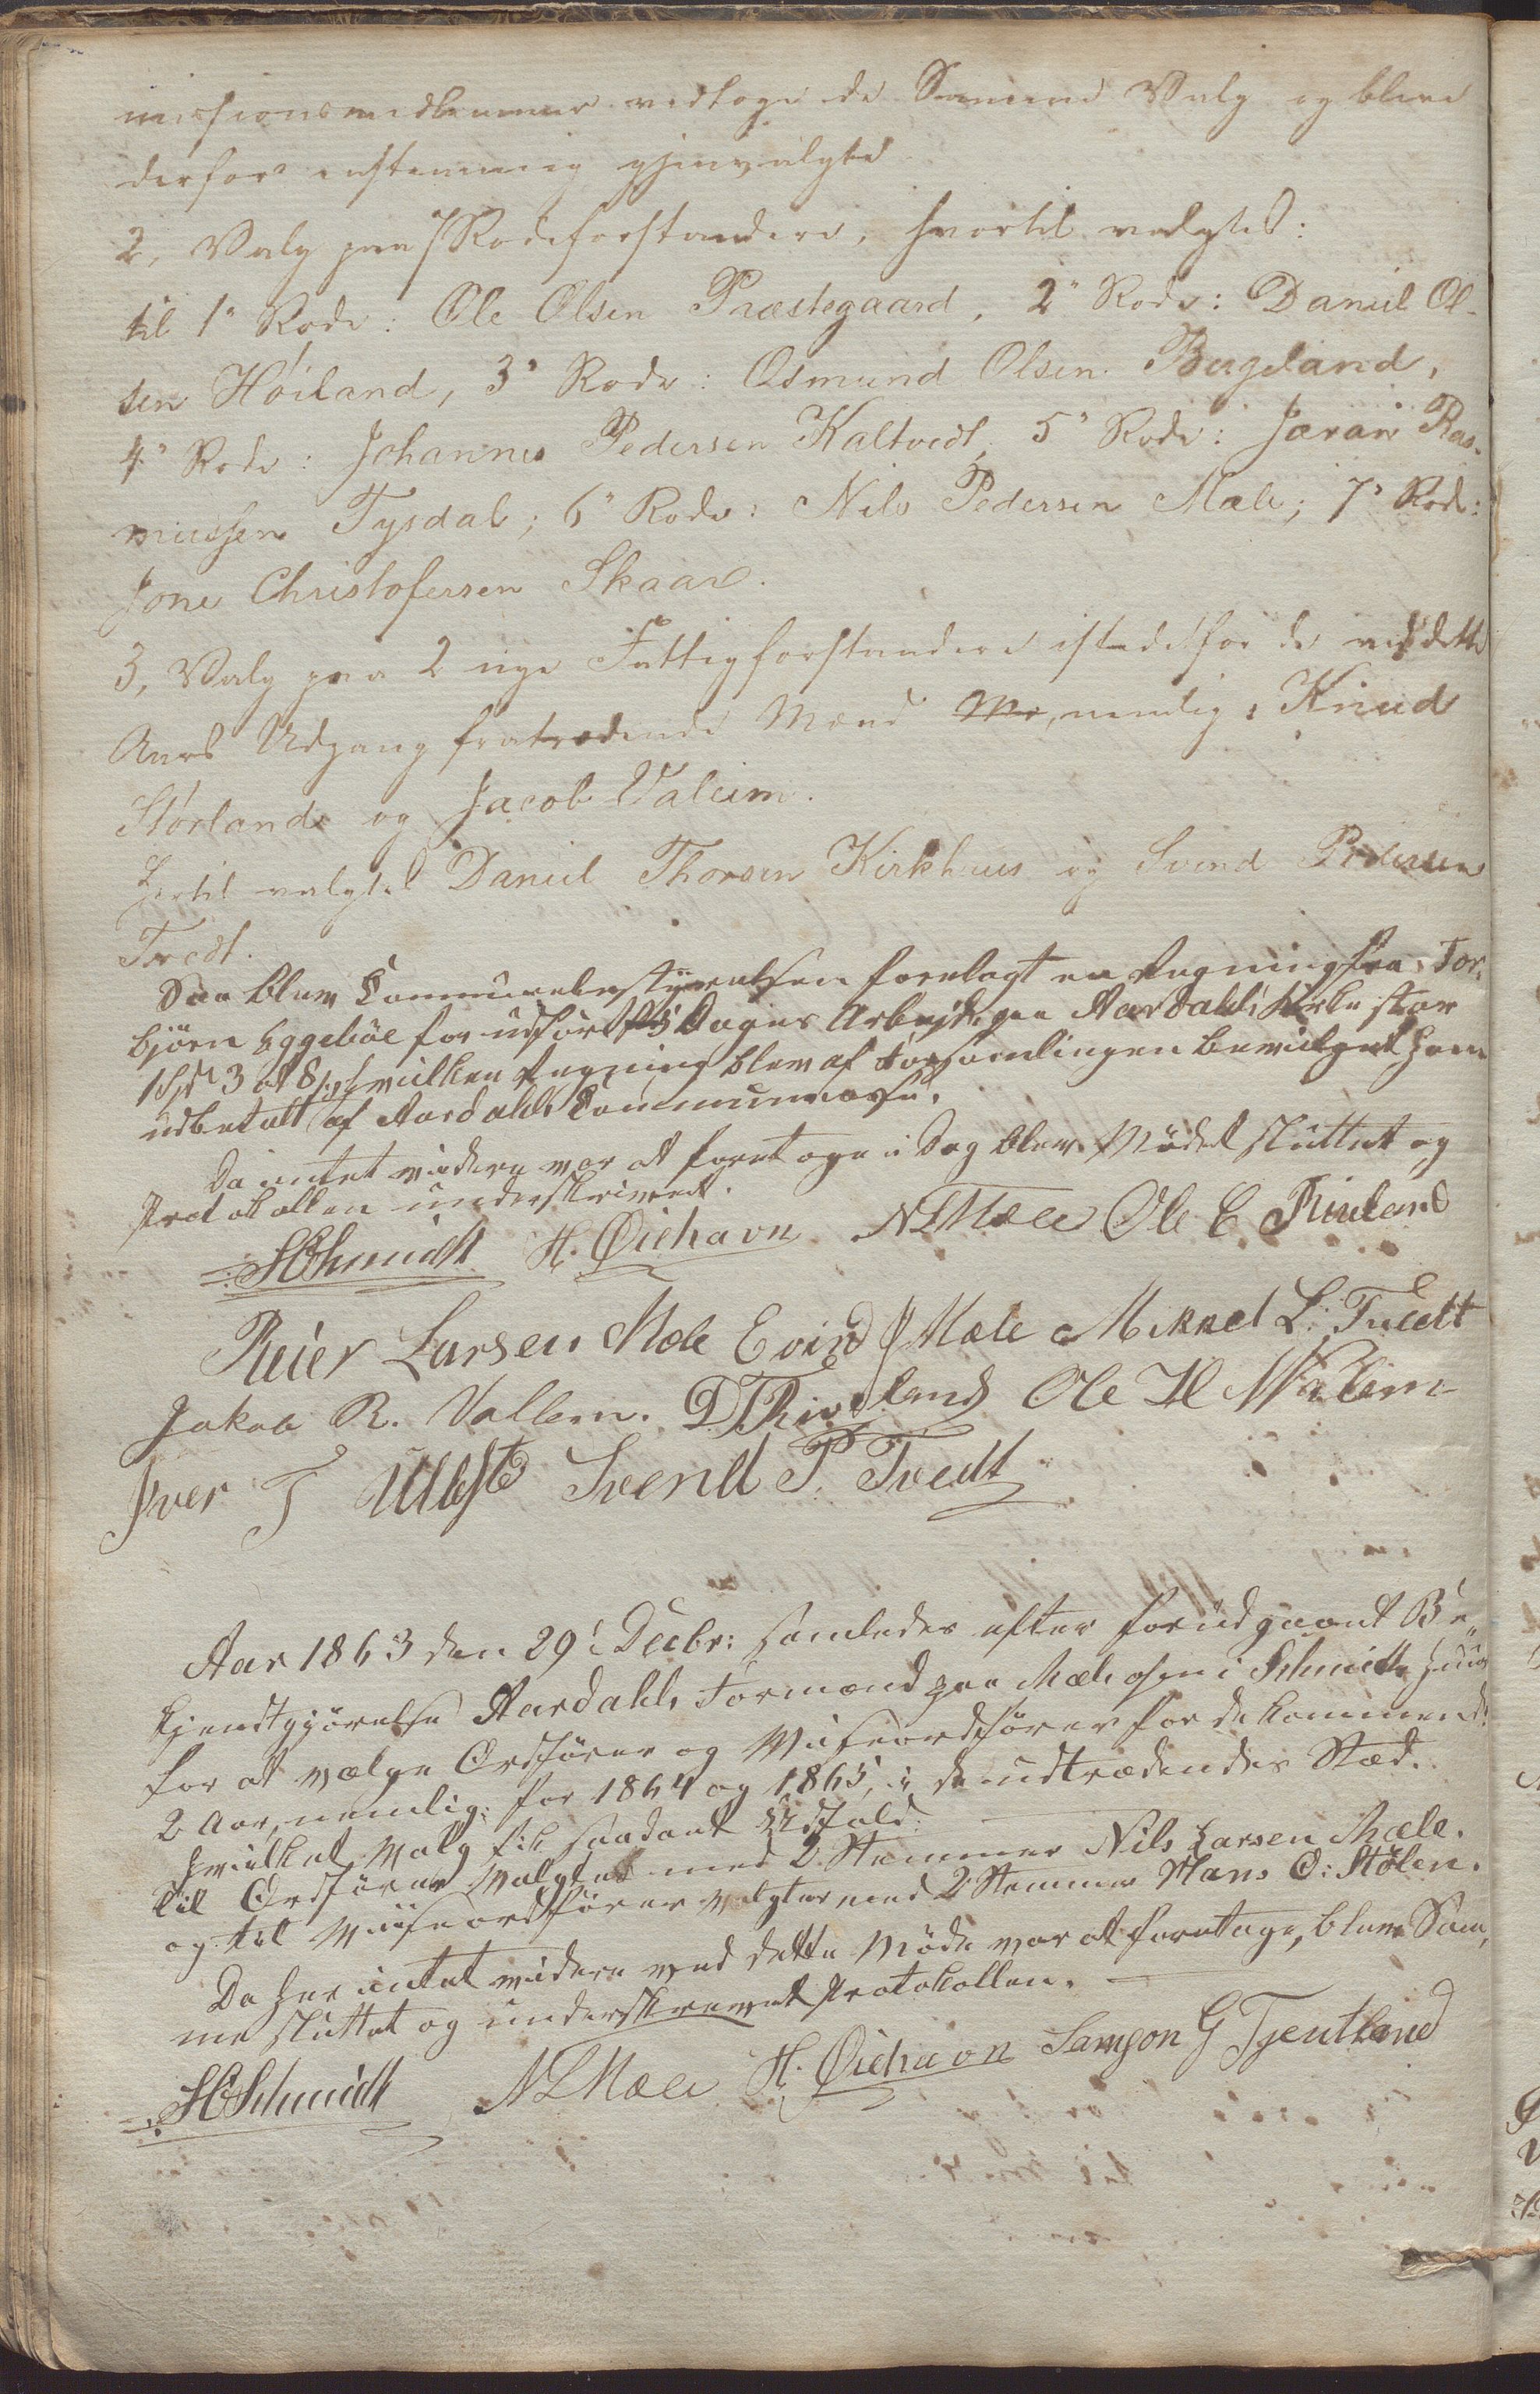 missionsmedlemmer vedtoge de Samme Valg og bleve
derfor enstemmig gjenvalgte
2, Valg paa 7 Rodeforstandere, hvortil valgtes:
til 1" Rode: Ole Olsen Præstegaard, 2" Rode: Daniel Ol-
sen Høiland, 3" Rode: Osmund Olsen Bergeland,
4" Rode: Johannes Pedersen Kaltvedt, 5" Rode: Jøran Ras-
mussen Tysdal; 6" Rode: Nils Pedersen Mæle; 7" Rode:
Jone Christofersen Skaar.
3, Valg paa 2 nye Fattigforstandere istedetfor de ved dette
Aars Udgang fratrædende Mænd nemlig: Knud
Størland og Jacob Valeim.
Hertil valgtes Daniel Thorsen Kirkhus og Svend Pedersen
Tvedt.
Saa blev Communebestyrelsen forelagt en Regning fra Tor-
björn Eggeböe for udført 5 Dages Arbejde paa Aardahls Kirke stor
1 Spd 3 ort 8 s, hvilken Regning blev af Forsamlingen bevilget ham
udbetalt af Aardahls Communecasse.
Da intet videre var at foretage i Dag blev Mödet sluttet og
Protokollen underskrevet.
SCSchmidt H. Øiehavn NLMæle Ole E Riveland
Reier Larsen Mæle Evind J Mæle Mikkel L. Tvedt
Jakob R. Vallem. D T Riveland Ole H Valem
Iver T Ulveste Svend P. Tvedt
Aar 1863 den 29de Decbr: samledes efter forudgaaet Be„
kjendtgjörelse Aardahls Formænd paa Mæleosen i Schmidts Huus
for at vælge Ordförer og Viseordförer for de kommende
2 Aar, nemlig: for 1864 og 1865, i de udtrædendes Stæd.
Hvilket Valg fik saadant Udfald:
Til Ordförer valgtes med 2 Stemmer Nils Larsen Mæle.
og til Viiseordförer valgtes med 2 Stemmer Hans O: Stölen.
Da her intet videre ved dette Möde var at foretage, blev Sam„
me sluttet og underskrevet Protokollen.
SCSchmidt NLMæle H. Øiehavn Samson G Tjentland